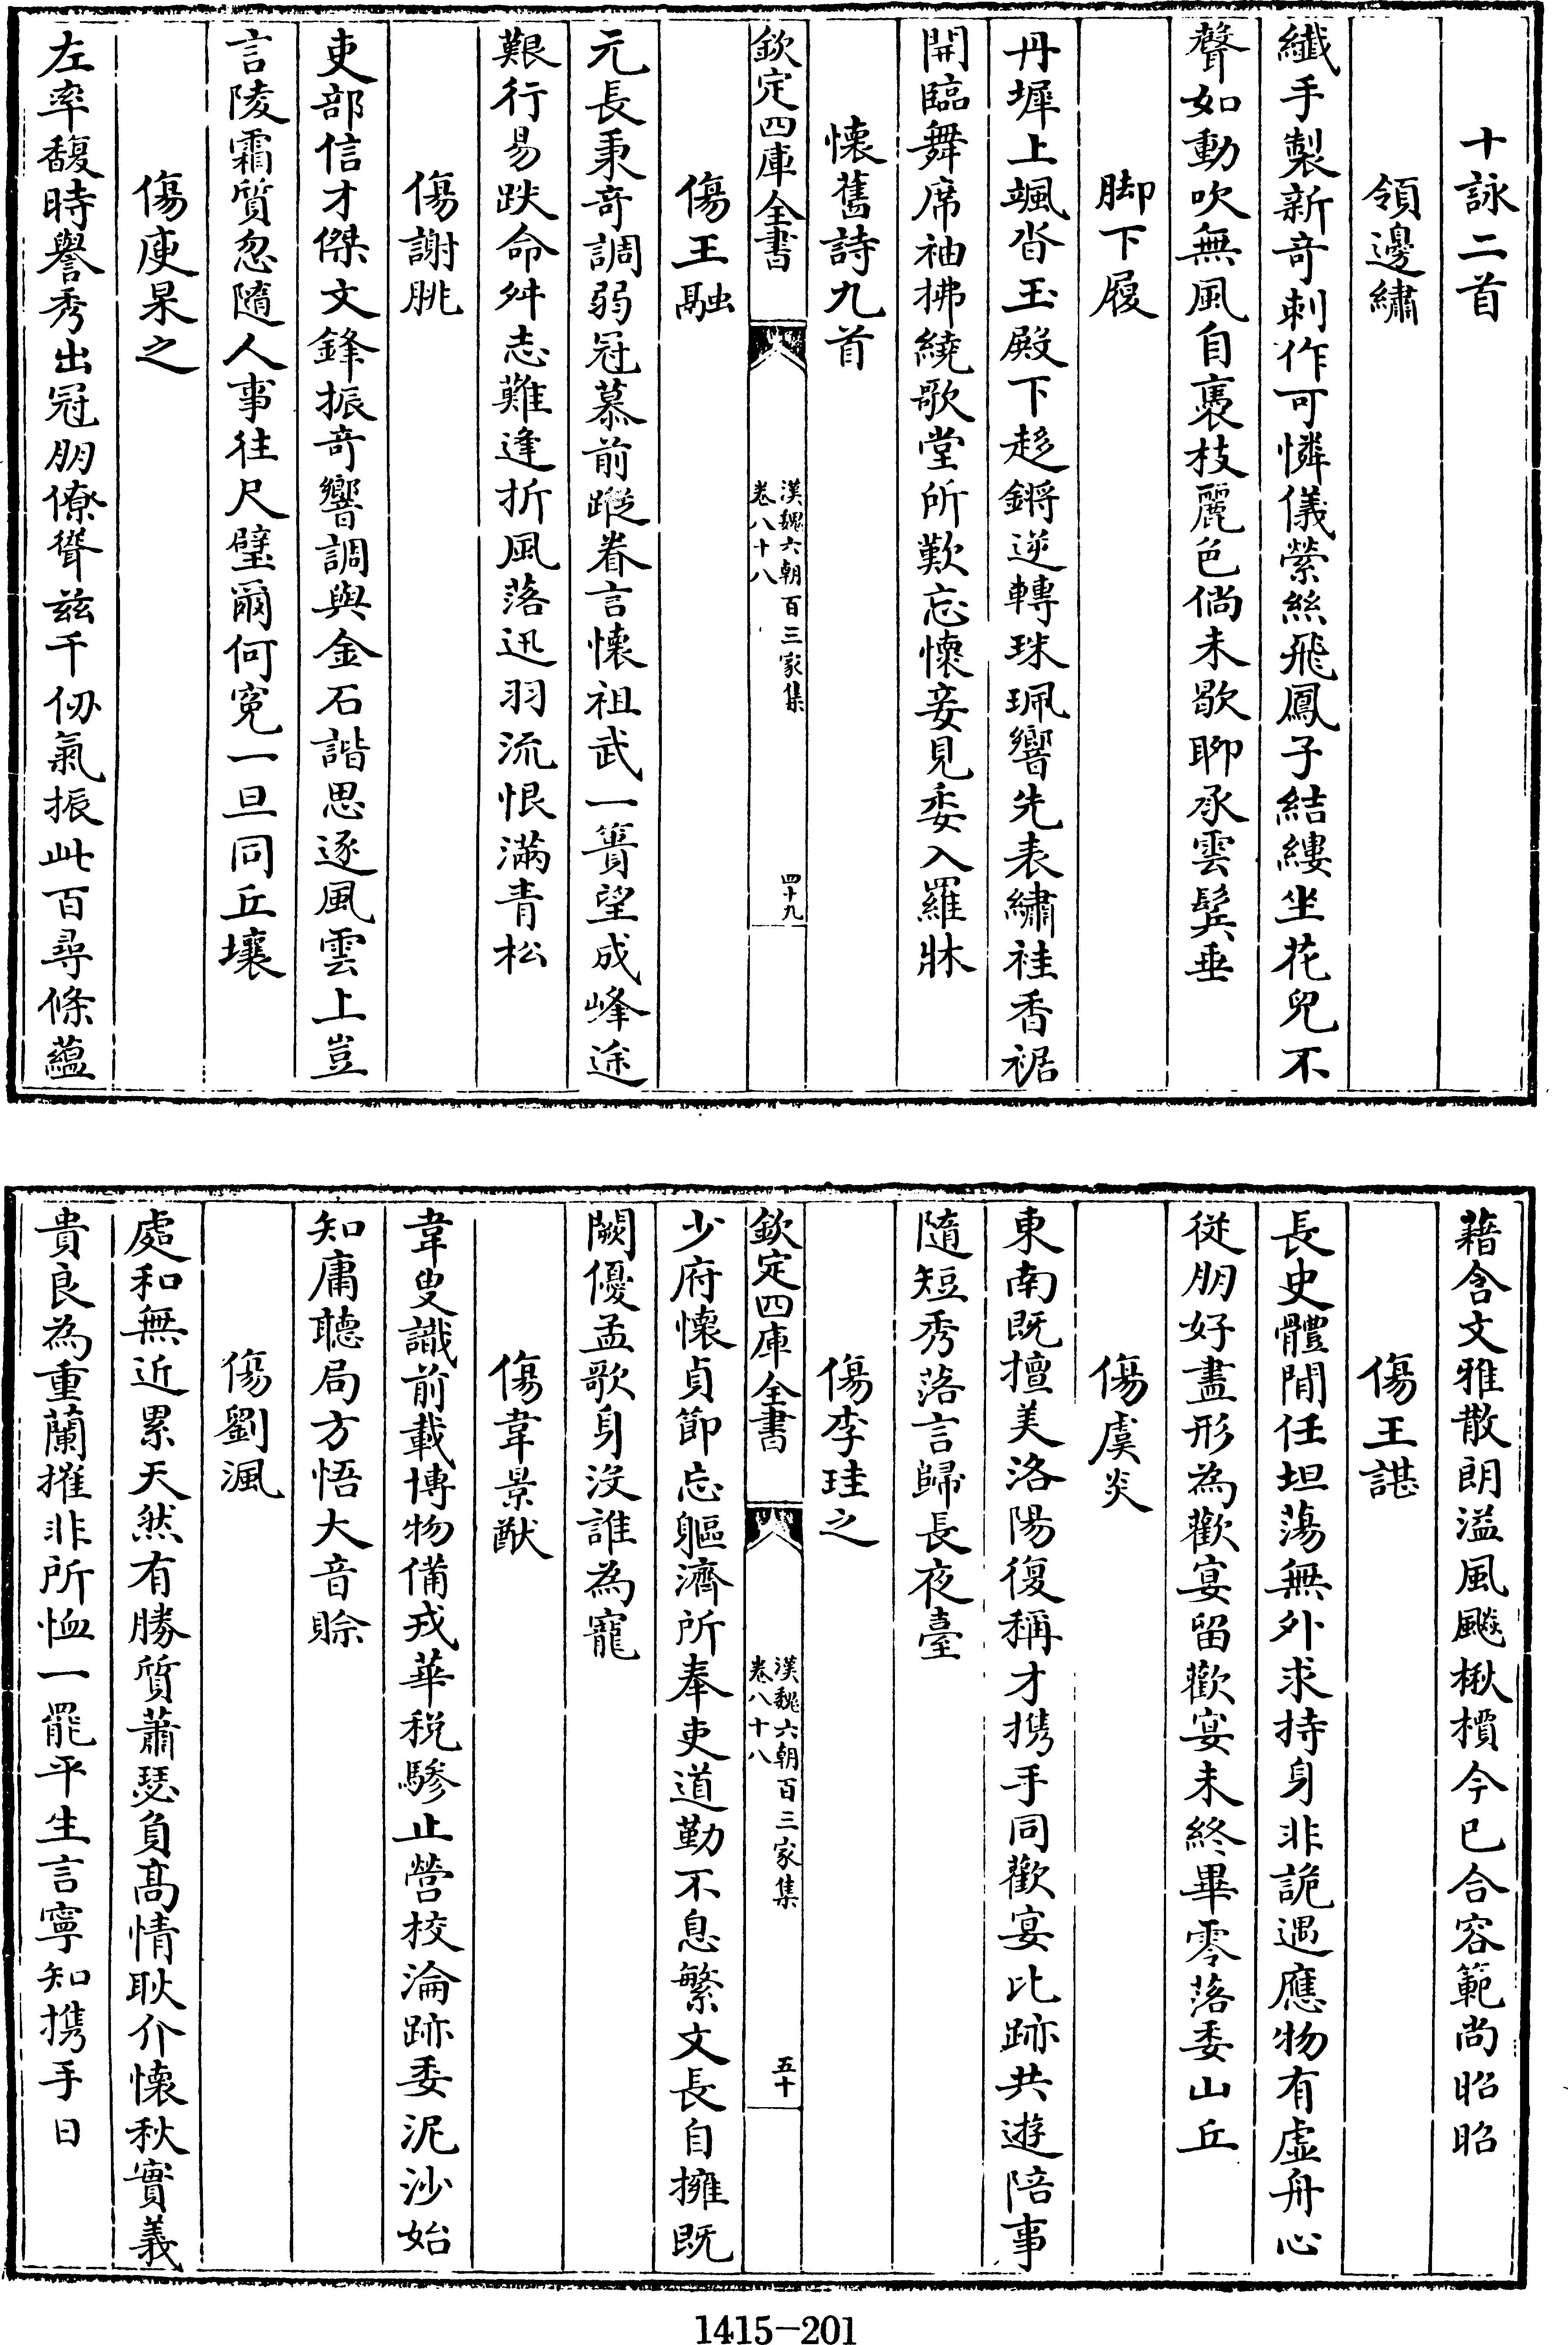 十詠二首
領邊繡
纎手製新竒刺作可憐儀縈絲飛鳳子結縷坐花兒不
聲如動吹無風自裊枝麗色倘未歇聊承雲鬂垂
脚下履
丹墀上颯沓玉殿下趍鏘逆轉珠珮響先表繡袿香裾
開臨舞席袖拂繞歌堂所歎忘懷妾見委入羅牀
懷舊詩九首
欽定四庫全書
漢魏六朝百三家集
卷八十八
四十九
傷王融
元長秉竒調弱冠慕前蹤眷言懷祖武一簣望成峰途
艱行易跌命舛志難逢折風落迅羽流恨滿青松
傷謝朓
吏部信才傑文鋒振竒響調與金石諧思逐風雲上豈
言陵霜質忽隨人事往尺璧爾何寃一旦同丘壤
傷庾杲之
左率馥時譽秀出冠朋僚聳兹千仭氣振此百尋條蘊
藉含文雅散朗溢風飈楸檟今已合容範尚昭昭
傷王諶
長史體閒任坦蕩無外求持身非詭遇應物有虚舟心
從朋好盡形為歡宴留歡宴未終畢零落委山丘
傷虞炎
東南既擅美洛陽復稱才擕手同歡宴比跡共遊陪事
隨短秀落言歸長夜臺
傷李珪之
欽定四庫全書
漢魏六朝百三家集
卷八十八
五十
少府懷貞節忘軀濟所奉吏道勤不息繁文長自擁既
闕優孟歌身没誰為寵
傷韋景猷
韋叟識前載博物備戎華税驂止營校淪跡委泥沙始
知庸聽局方悟大音賒
傷劉渢
處和無近累天然有勝質蕭瑟負髙情耿介懷秋實義
貴良為重蘭摧非所恤一罷平生言寧知擕手日
1415-201